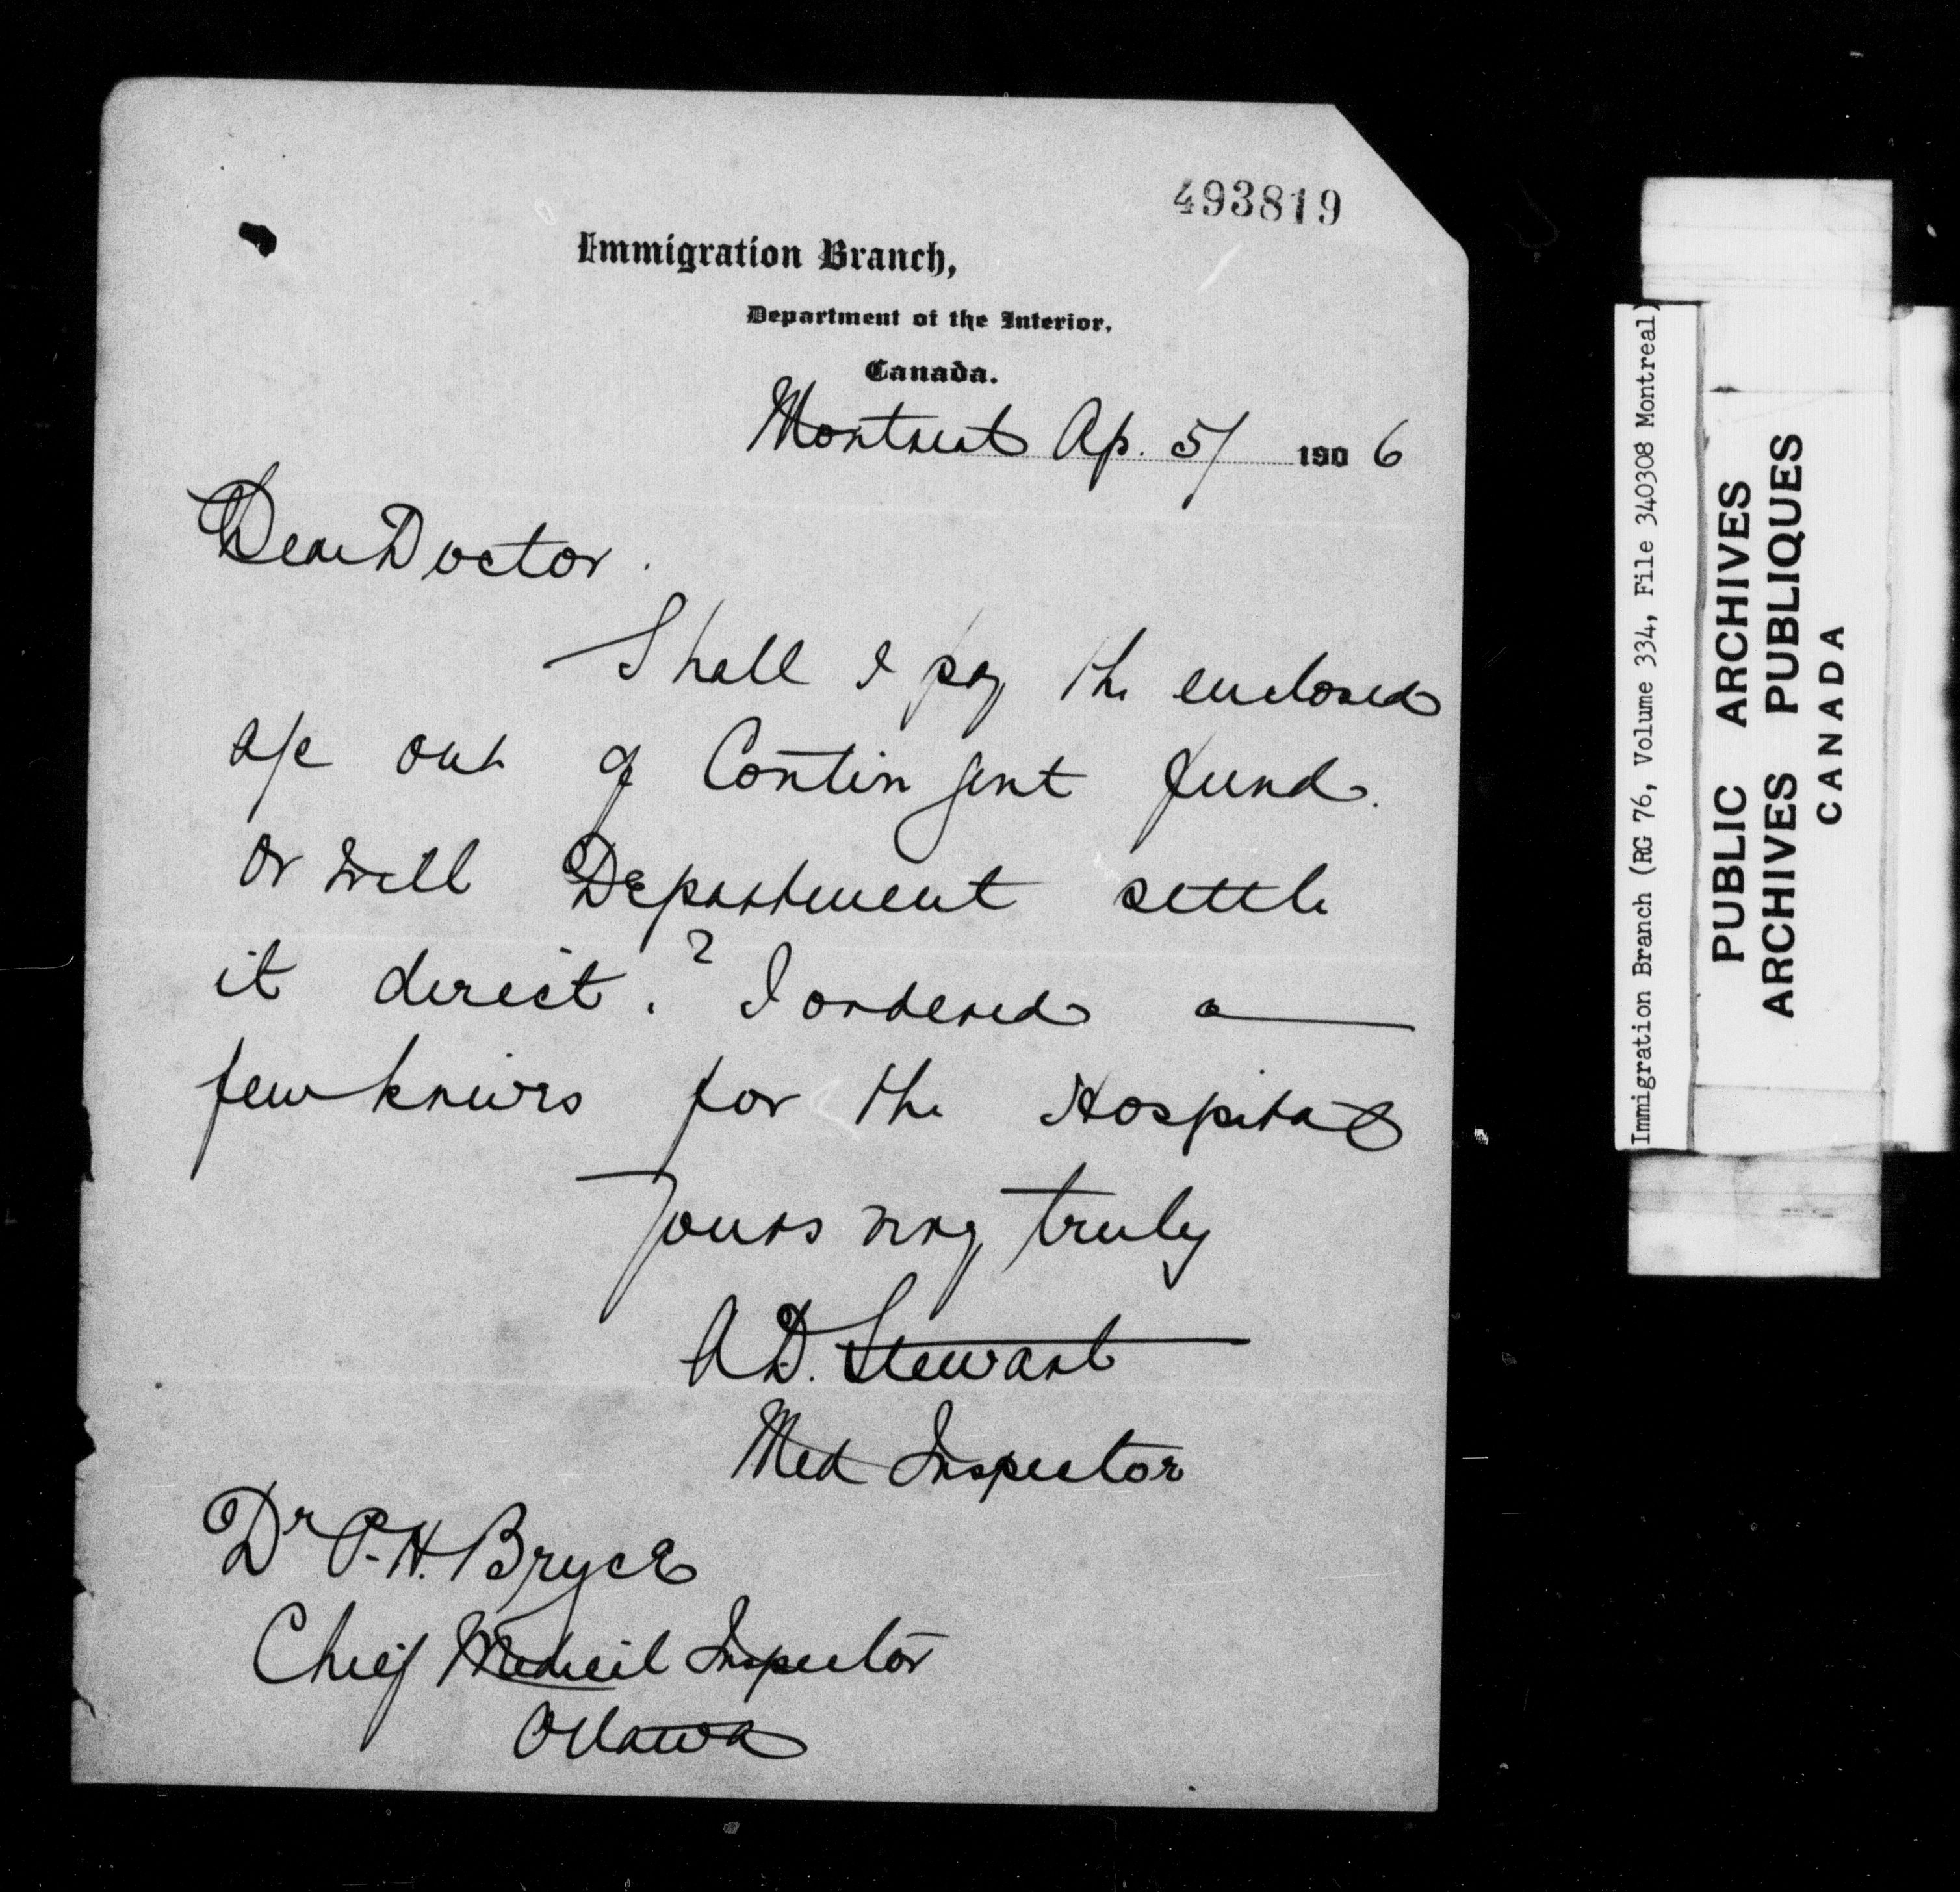 493819
Immigration Branch,
Department of the Interior,
Canada.
Montreal Ap. 5/ 1906
Dear Doctor.
Shall I pay the enclosed
a/c out of Contingent fund.
or will Department settle
it direct.? I ordered a
few knives for the Hospital
Yours very truly
A D. Stewart
Med Inspector
Dr P. H. Bryce
Chief Medical Inspector
Ottawa
Immigration Branch (RG 76, Volume 334, File 340308 Montreal)
PUBLIC ARCHIVES
ARCHIVES PUBLIQUES
CANADA